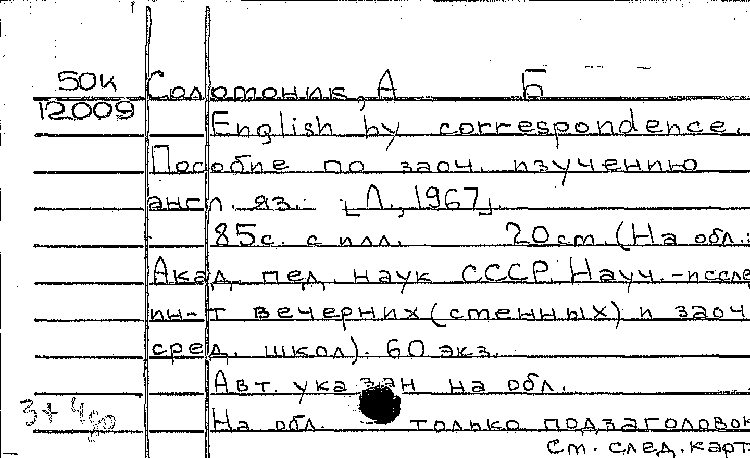 50к Соломоник, А Б
12009 English by correspondence.
Пособие по заоч. изучению
англ. яз. [Л., 1967].
85с. с илл. 20см. (На обл.:
Акад. пед. наук СССР. Науч.-иссле
ин-т вечерних (сменных) и заоч
сред. школ). 60 экз.
Авт. указан на обл.
3+4 На обл. только подзаголовок
См. след. карт.